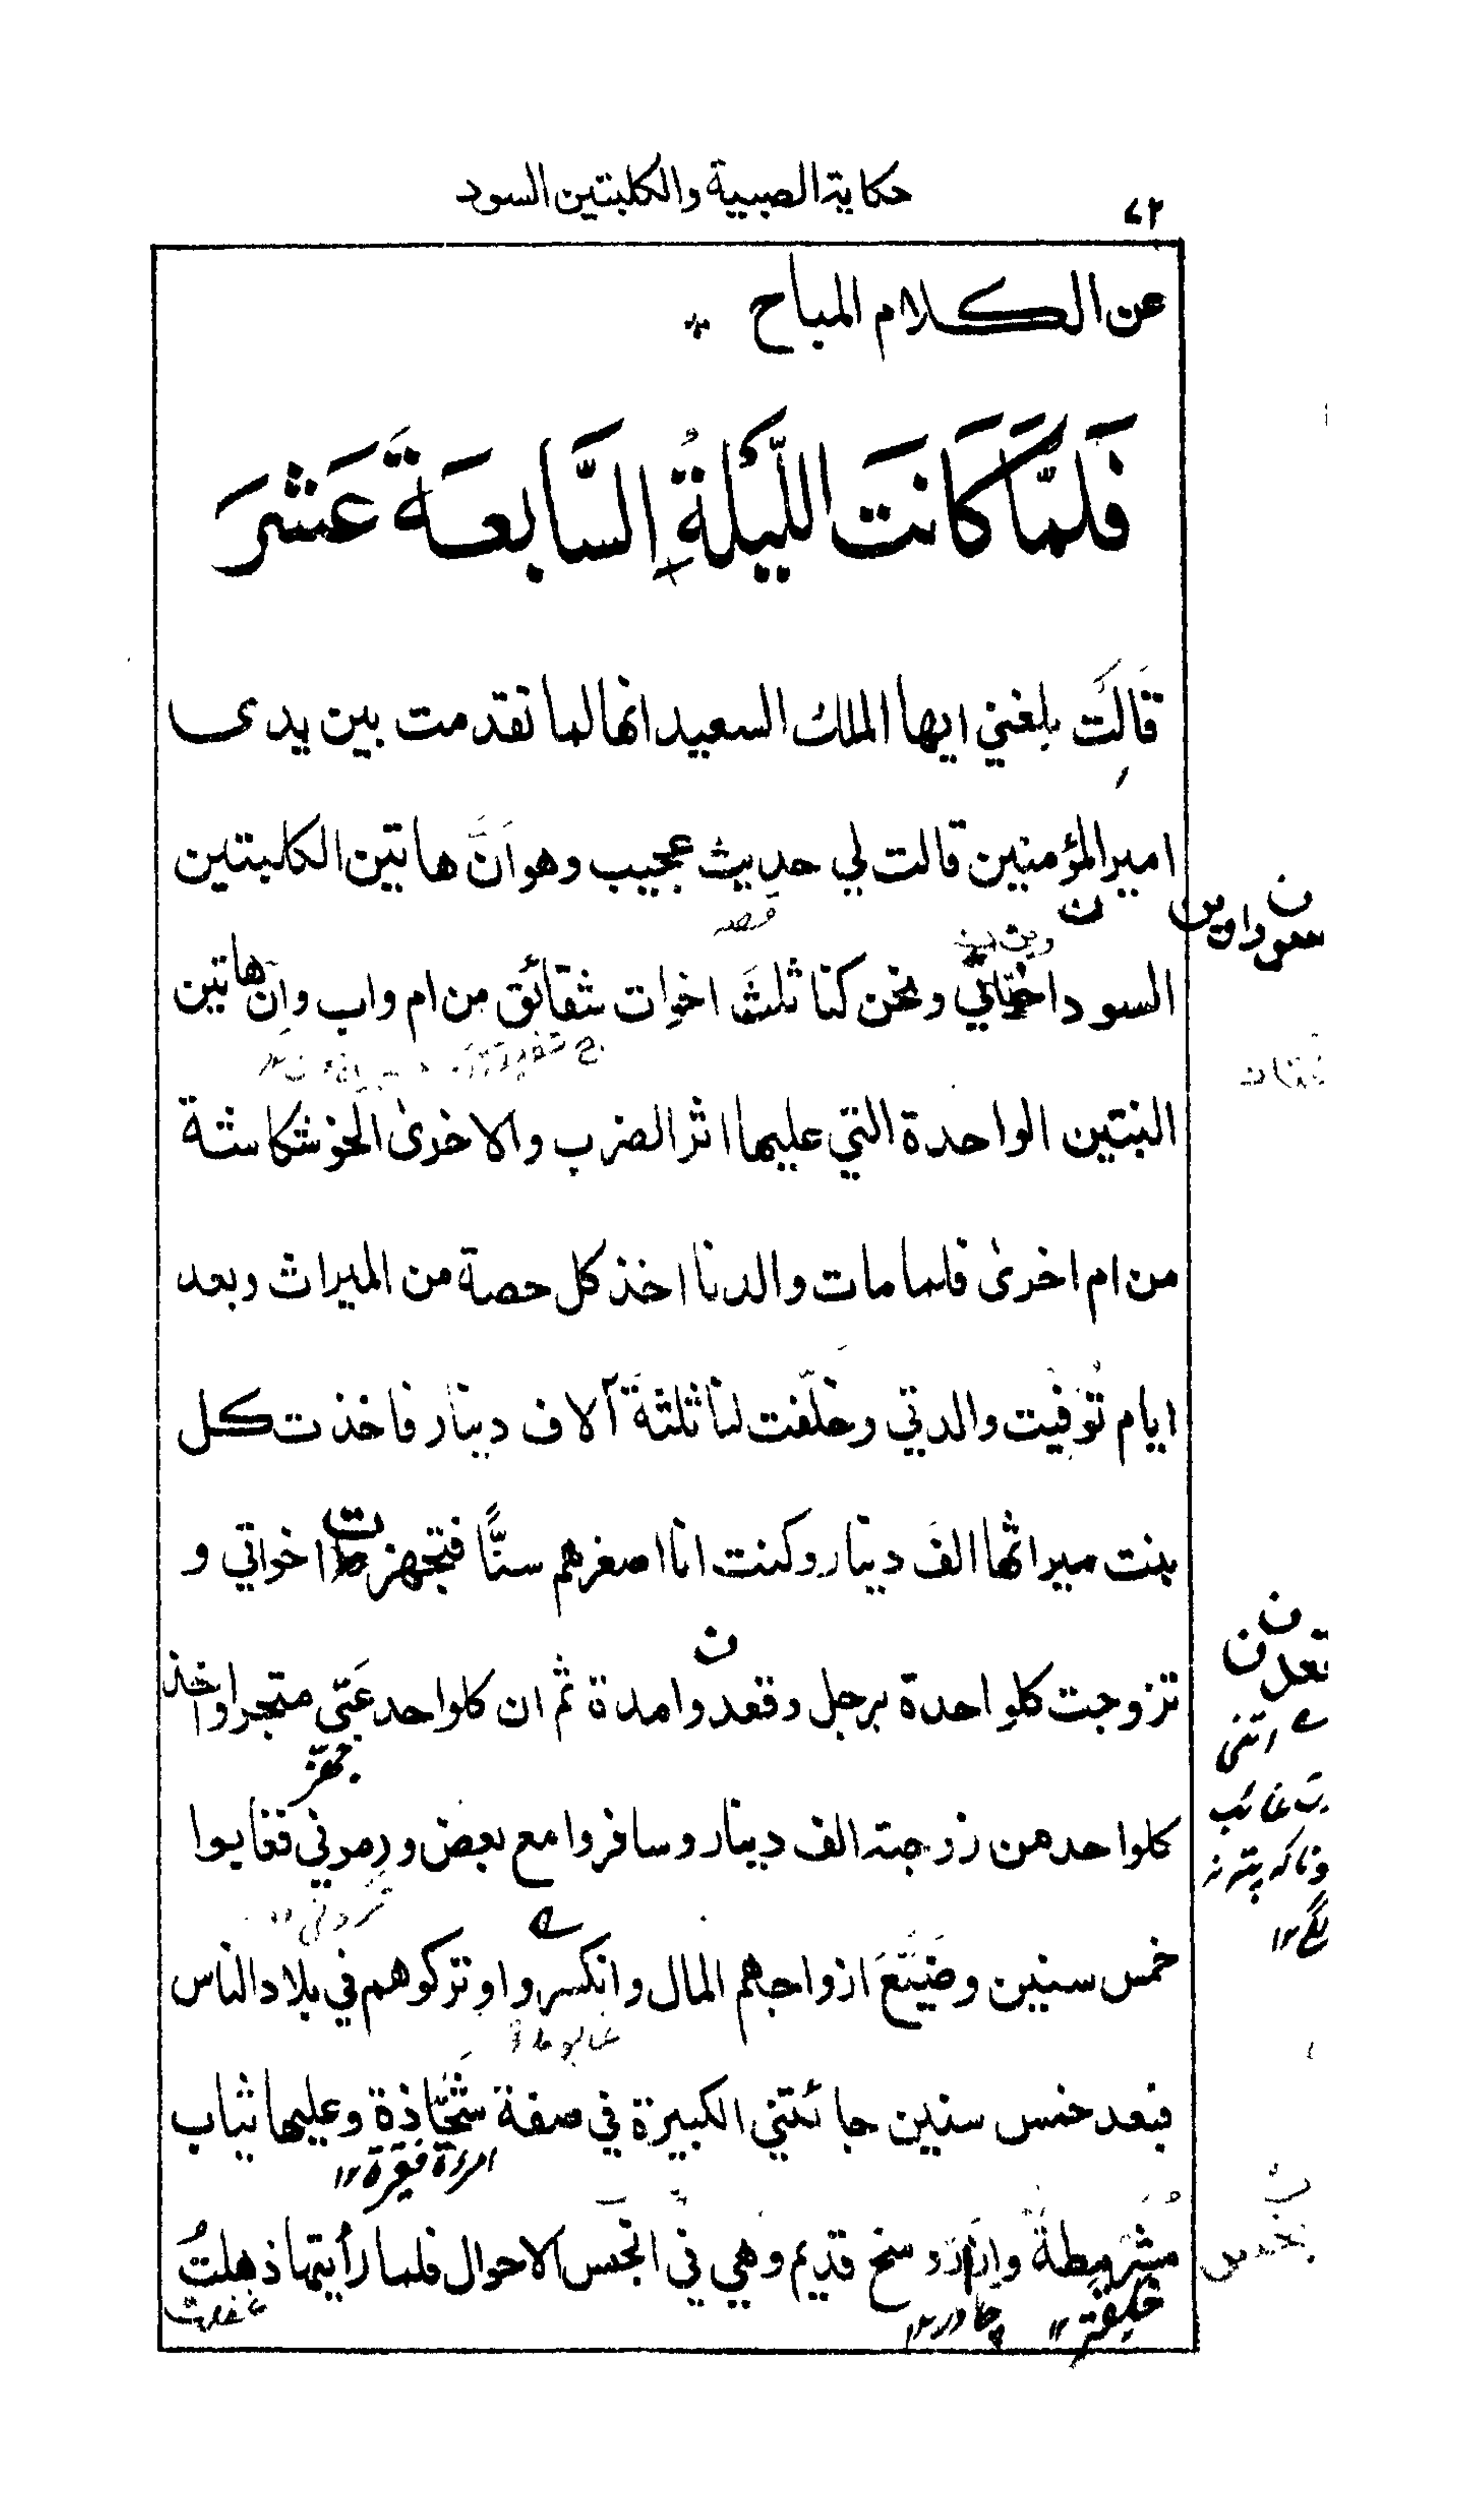 حكاية الصبية والكلبتين السود
عن الكلام المباح
فَلَمَّا كَانَتِ اللَّيْلَةُ السَّابِعَةَ عَشَرَ
قَالَتْ بلغني ايها الملك السعيد انها لما تقدمت بين يدى
امير المؤمنين قالت لي حديث عجيب وهو اَنَّ هاتين الكلبتين
السود اختاي ونحن كنا ثلثَ اخوات شقائق من ام واب وان هاتين
البنتين الواحدة التي عليها اثر الضرب والاخرىٰ الخوشكاشة
من ام اخرىٰ فلما مات والدنا اخذ كل حصة من الميراث وبعد
ايام تُوُفيت والدتي وخلّفت لنا ثلثةَ آلاف دينار فاخذت كل
بنت ميراثها الفَ دينار وكنت انا اصغرهم سنًّا فتجهزت اخواتي و
تزوجت كلواحدة برجل وقعدوا مدة ثم ان كلواحد عَبّي متجرا واخذ
كلواحد من زوجته الف دينار وسافروا مع بعض ورموني فغابوا
خمس سنين وضَيَّعَ ازواجهم المال وانكسروا وتركوهم في بلاد الناس
فبعد خمس سنين جائتني الكبيرة في صفة شَحَّاذة وعليها ثياب
امرءة فقيرة
مشرمطة وازار وسخ قديم وهي في انحس الاحوال فلما رأيتها ذهلتُ